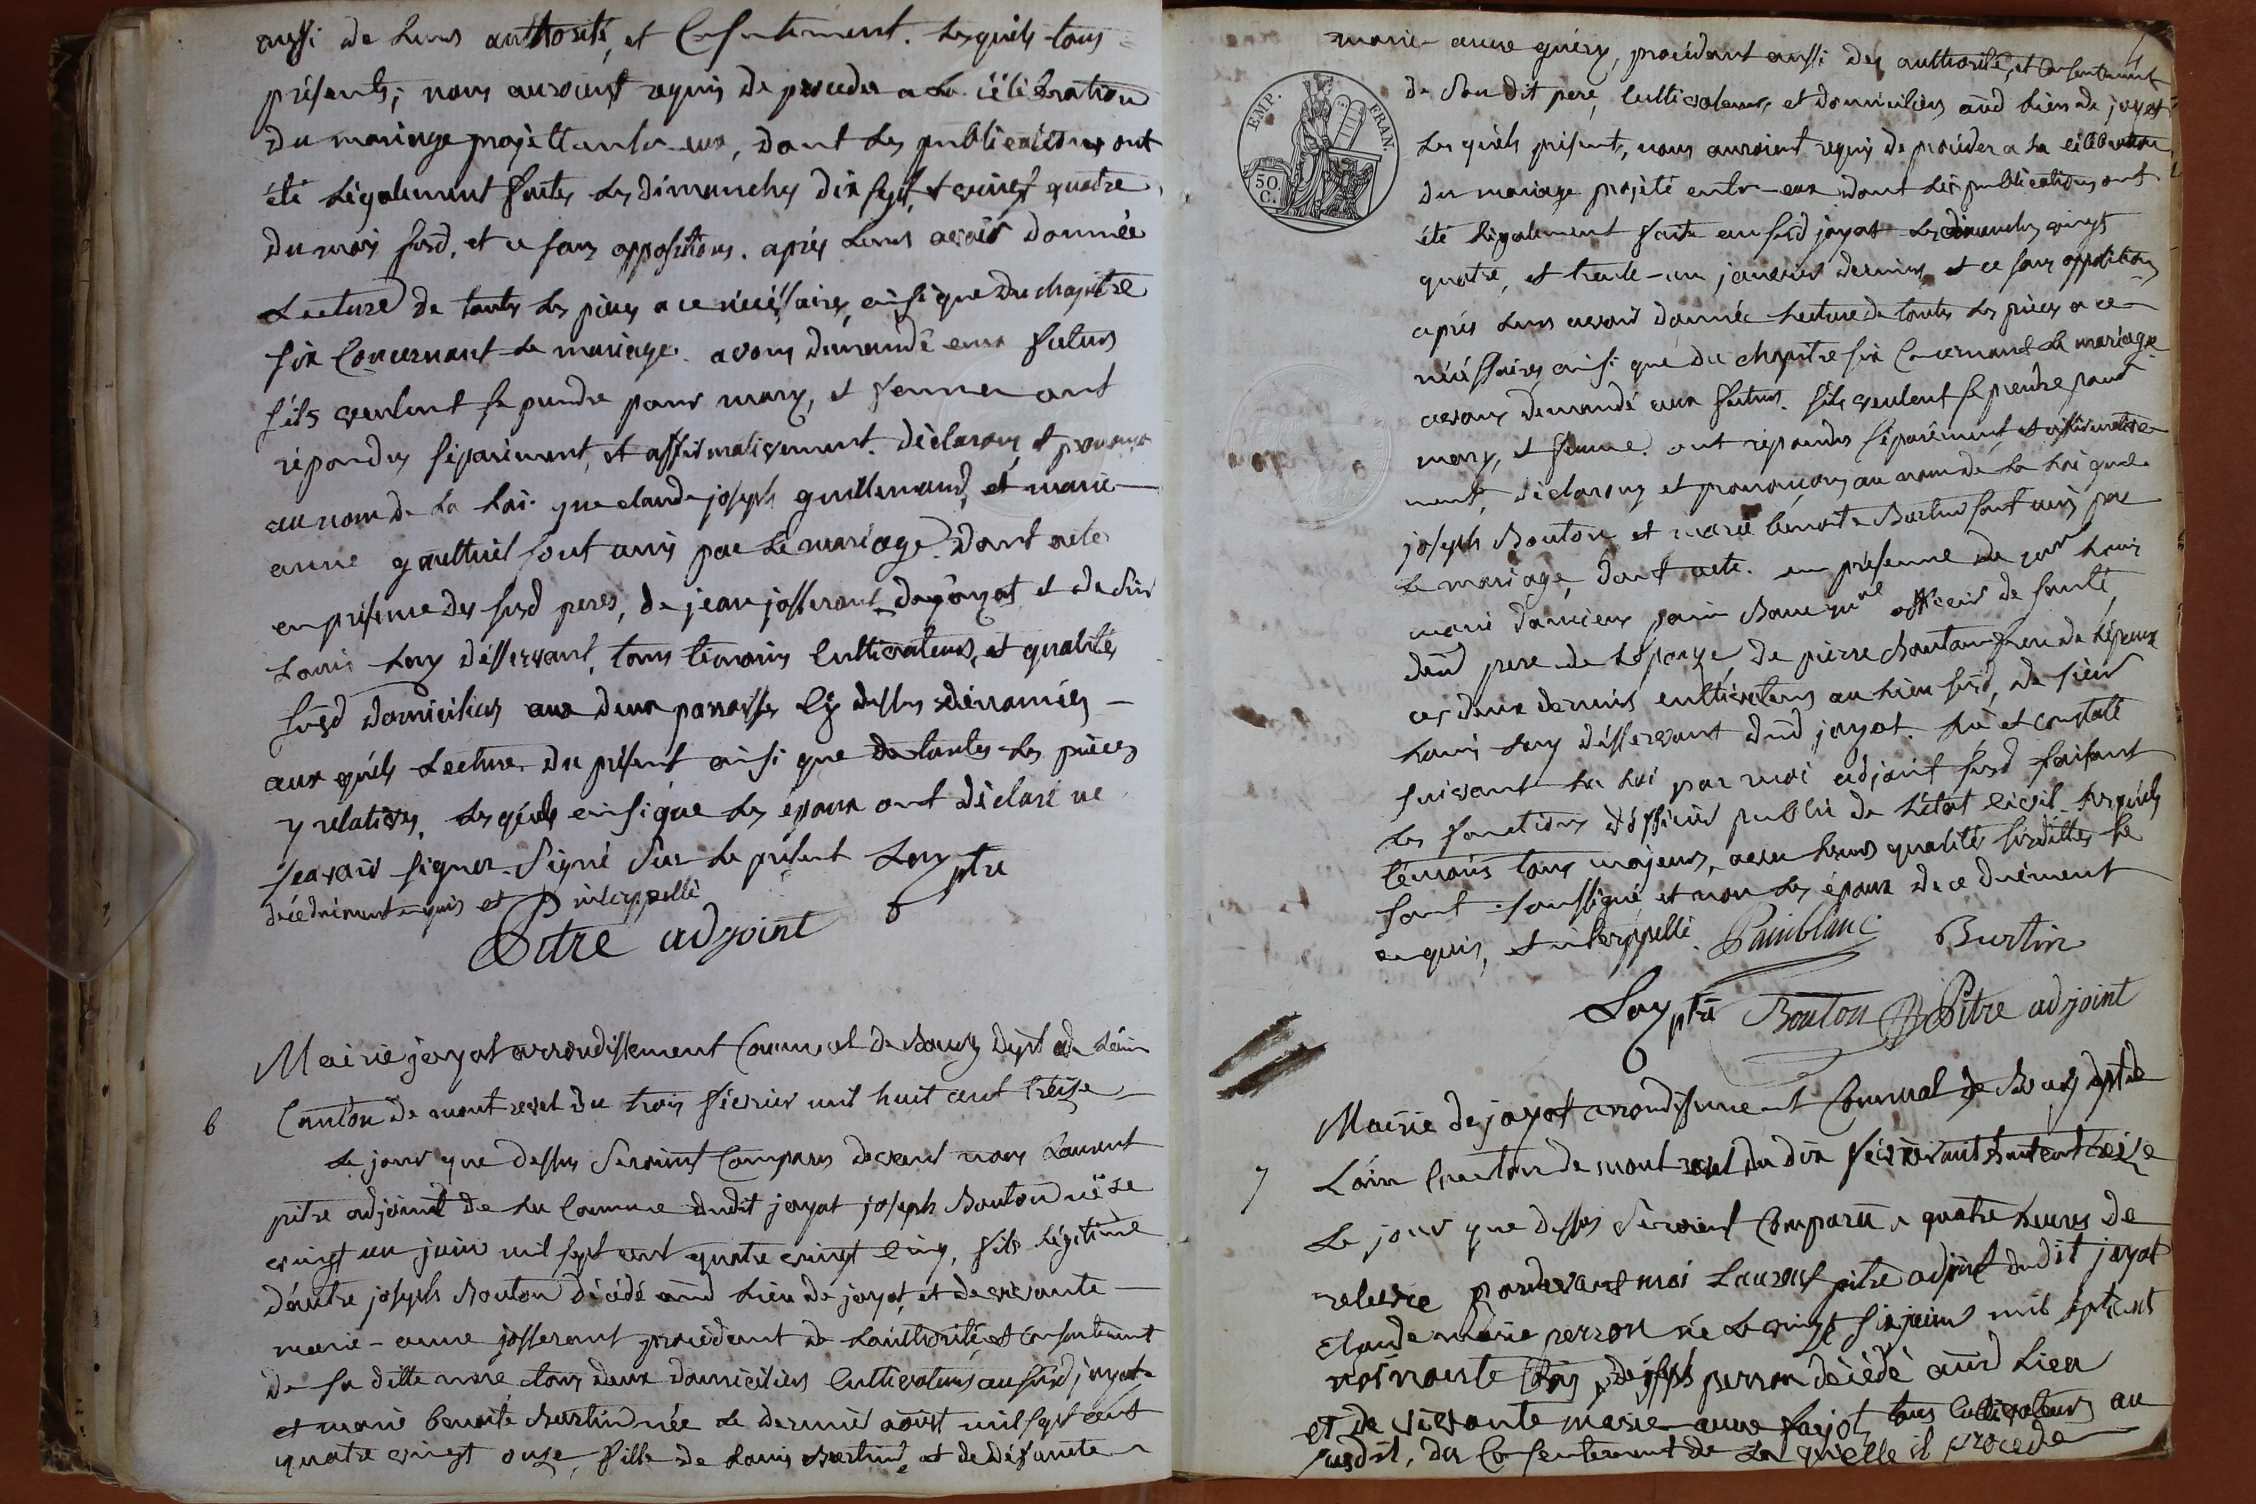 aussi de Leurs authorité, et Consentement. Lesquels tous
présents, nous auroient requis de proceder a La célébration
du mariage projetté entre eux, dont Les publications ont
été Légalement faites Les dimanches dix sept, et vingt quatre
du mois susd. et ce sans oppositions. après Leurs avoir donnée
Lecture de toutes Les pièces a ce nécéssaires, ainsi que du chapitre
six Concernant Le mariage. avons demandé aux futurs
s'ils veulent se prendre pour mary, et femme ont
répondus séparément, et affirmativement. déclarons et prononçons
au nom de La Loi que claude joseph guillemaud, et marie
anne gaulthiel sont unis par Le mariage. Dont acte
en présence des susd peres, de jean josserant de jayat et de sieur
Louis Loxy désservant, tous témoins Cultivateurs, et qualités
susd domiciliés aux deux paroisses Cy dessus dénomées
aux quels Lecture du présent ainsi que de toutes Les pièces
y relatives. Les quels ainsi que Les époux ont déclaré ne
scavoir signer. Signé Sur Le présent Loxy ptre
de ce duëment enquis et interppellé
Pitre adjoint
Mairie jayat arrondissement Communal de Bourg dépt de L'ain
6 Canton de montrevel du trois février mil huit cent treize
Le jour que dessus Seroient Comparus devant nous Laurent
pitre adjoint de La Commune dudit jayat joseph Bouton né Le
vingt un juin mil sept cent quatre vingt Cinq, fils Légitime
d'autre joseph Bouton décédé aud Lieu de jayat, et de vivante
marie-anne josserant procédant de L'authorité, et Consentement
de sa ditte mere, tous deux domiciliés Cultivateurs au susd jayat.
et marie benoite Burtin née Le dernier août mil sept cent
quatre vingt onze, fille de Louis Burtin, et de défunte
marie-anne guéry, procédant aussi des authorité, et Consentement
de Son dit pere, Cultivateurs, et domiciliés aud Lieu de jayat
Les quels présents, nous auroient requis de procéder a La célébration
du mariage projeté entre eux dont Les publications ont
été Légalement faite au susd jayat Les dimanches vingt
quatre, et trente-un janvier dernier, et ce sans opposition
après Leurs avoir donnée Lecture de toutes Les pièces a ce
nécéssaires, ainsi que du chapitre six Concernant Le mariage
avons demandé aux futurs. s'ils veulent se prendre pour
mary, et femme. ont répondus séparément, et affirmative
ment, déclarons et prononçons au nom de La Loi que
joseph Bouton et marie benoite Burtin sont unis par
Le mariage, dont acte. en présence de Louis
marie damiens officier de santé,
dud pere de L'épouse, de pierre Bouton frere de L'époux
ces deux derniers cultivateurs au Lieu susd, de sieur
Louis Loxy désservant dud jayat. Lu et constaté
suivant La Loi par moi adjoint susd faisant
Les fonctions d'officier public de L'état Civil. Lesquels
témoins tous majeurs, avec Leurs qualités susdittes se
sont soussigné, et non Les époux de ce duëment
enquis, et interppellé. Painblanc Burtin
Loxy ptre Bouton Pitre adjoint
Mairie de jayat arrondissement Communal de Bourg dépt de
7 L'ain Canton de montrevel du dix février mil huit cent treize
Le jour que dessus Seroient Comparu a quatre heures de
relevée pardevant moi Laurent pitre adjoint dudit jayat
claude marie perron né Le vingt six juin mil sept cent
nonante trois, de joseph perron décédé aud Lieu
et de vivante marie-anne farjot, tous Cultivateurs au
susdit, du Consentement de La quelle il procede
EMP. FRAN.
50 C.